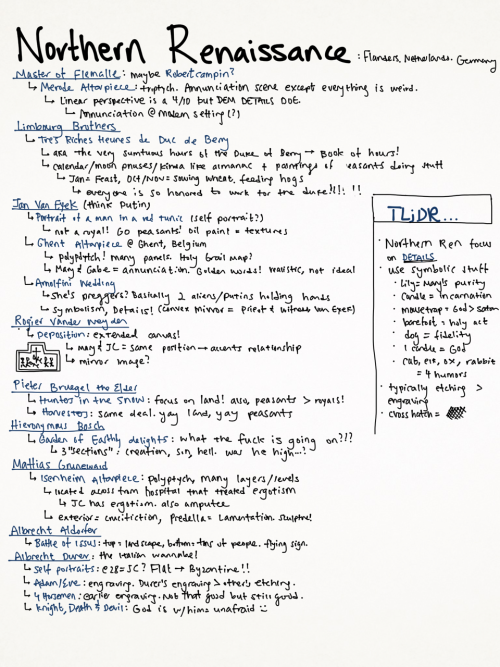 Northern Renaissance : Flanders, Netherlands, Germany
Master of Flemalle: maybe Robert campin?
↳ Merode Altarpiece: triptych. Annunciation scene except everything is weird.
↳ Linear perspective is a 4/10 but DEM DETAILS DOE.
↳ Annunciation @ modern setting (?)
Limbourg Brothers
↳ Tres Riches Heures de Duc de Berry
↳ aka the very sumtuous hours of the Duke of Berry → Book of hours!
↳ calendar/moon phases/kinda like almanac + paintings of peasants doing stuff
↳ Jan= Feast, Oct/Nov= sowing wheat, feeding hogs
↳ everyone is so honored to work for the duke!!!! !!
Jan Van Eyck (think Putin)
↳ Portrait of a man in a red tunic (self portrait?)
↳ not a royal! Go peasants! oil paint = textures
↳ Ghent Altarpiece @ Ghent, Belgium
↳ polyptych! many panels. Holy Grail map?
↳ Mary & Gabe = annunciation. Golden words! realistic, not ideal
↳ Arnolfini Wedding
↳ she's preggers? Basically 2 aliens/putins holding hands
↳ symbolism, Details! (convex mirror = priest & witness Van Eyck)
Rogier Vander Weyden
↳ Deposition: extended canvas!
↳ mary & JC = same position → accents relationship
↳ mirror image?
Pieter Bruegel the Elder
↳ Hunters in the snow: focus on land! also, peasants > royals!
↳ Harvesters: same deal. yay land, yay peasants
Hieronymous Bosch
↳ Garden of Earthly delights: what the fuck is going on?!?
↳ 3 "sections": creation, sin, hell. was he high...?
Mathias Grunewald
↳ Isenheim Altarpiece: polyptych, many layers/levels
↳ located across from hospital that treated ergotism
↳ JC has ergotism. also amputee
↳ exterior= crucifiction, Predella= Lamentation. sculptre!
Albrecht Aldorfer
↳ Battle of Issus: top = landscape, bottom= tons of people. flying sign.
Albrecht Durer: the italian wannabe!
↳ self portraits: @28= JC? Flat → Byzantine!!
↳ Adam/Eve: engraving. Durer's engraving > other's etchery.
↳ 4 Horsemen: earlier engraving. Not that good but still good.
↳ Knight, Death & Devil: God is w/him= unafraid :)
TL;DR...
· Northern Ren focus
on DETAILS
· use symbolic stuff
· Lily= Mary's purity
· candle = incarnation
· mousetrap = God > satan
· barefoot = holy act
· dog = fidelity
· 1 candle = God
· cat, elk, ox, rabbit
= 4 humors
· typically etching >
engraving
· cross hatch =